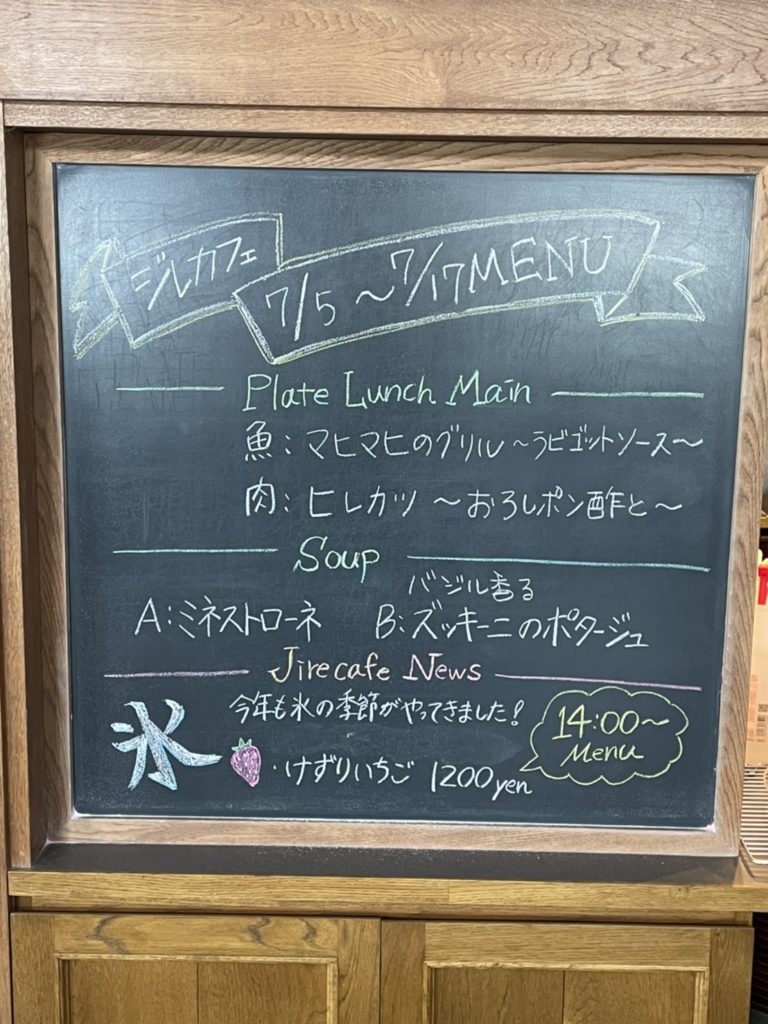 ジルカフェ
7/5~7/17MENU
Plate Lunch Main
魚:マヒマヒのグリル~ラビゴットソース~
肉:ヒレカツ ~おろしポン酢と~
Soup
A:ミネストローネ
バジル香る
B:ズッキーニのポタージュ
Jirecafe News
氷
今年も氷の季節がやってきました!
・けずりいちご 1200yen
14:00~
Menu